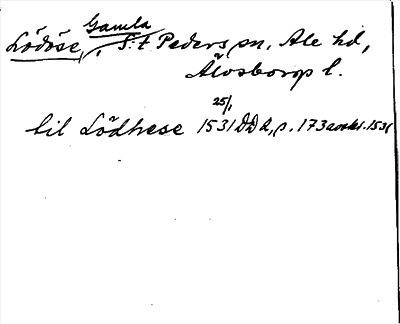 Lödöse, Gamla, S:t Peders sn, Ale hd,
Älvsborgs l.
til Lödhese 1531 25/1 DD 2, s. 173 avskr. 1531